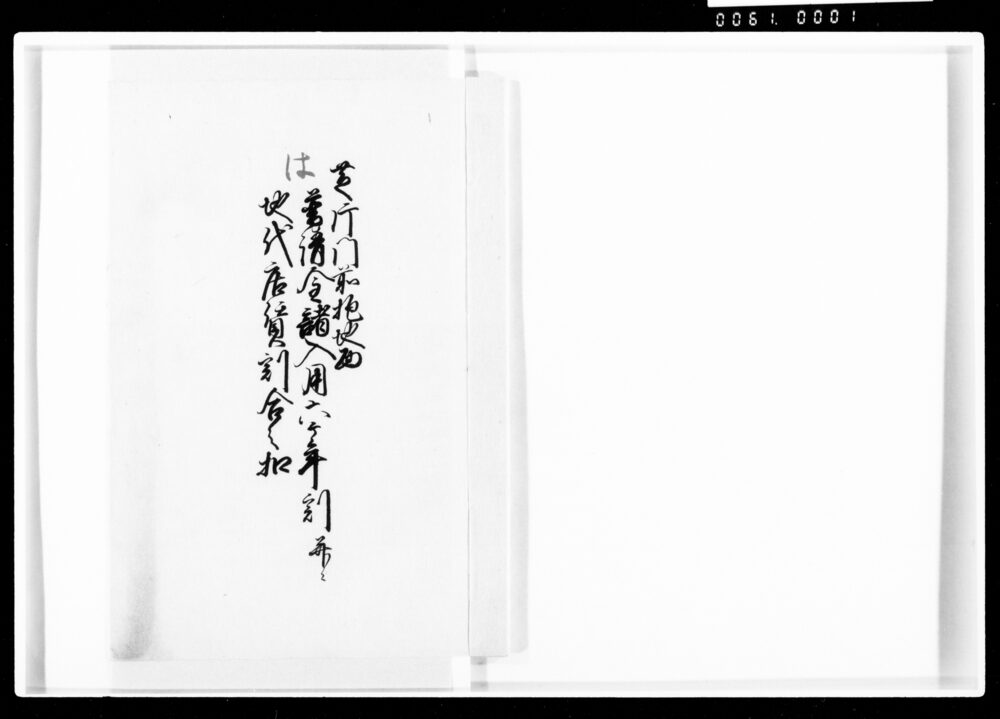 0061. 0001
芝片門前抱地面
は
普請金諸入用六ケ年割並ニ
地代店賃割合之扣